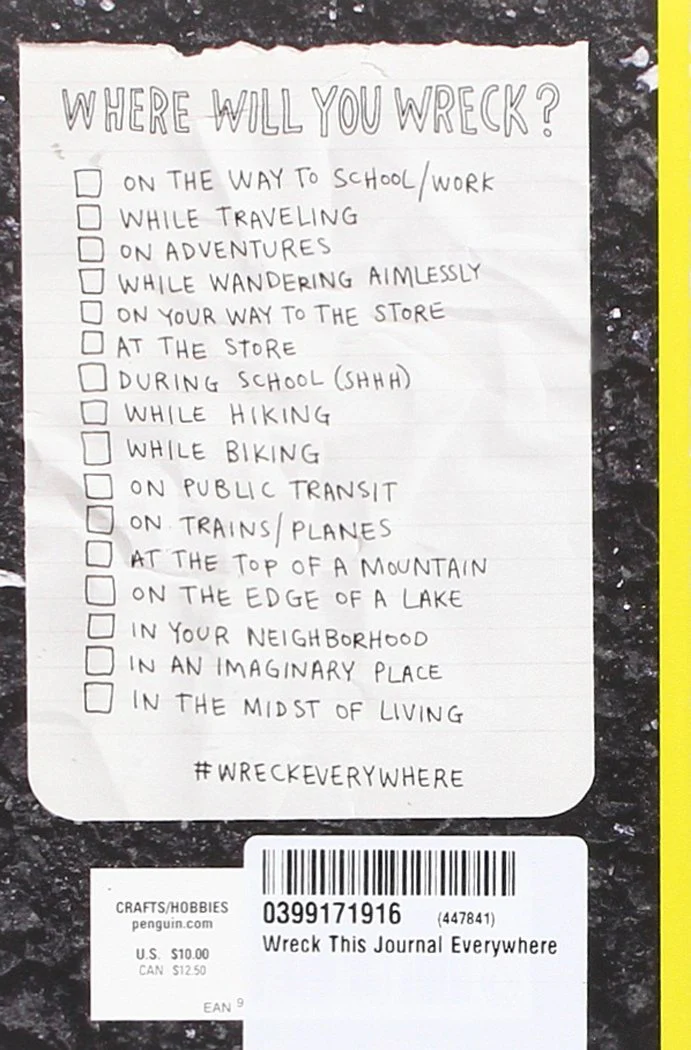 WHERE WILL YOU WRECK?
ON THE WAY TO SCHOOL/WORK
WHILE TRAVELING
ON ADVENTURES
WHILE WANDERING AIMLESSLY
ON YOUR WAY TO THE STORE
AT THE STORE
DURING SCHOOL (SHHH)
WHILE HIKING
WHILE BIKING
ON PUBLIC TRANSIT
ON TRAINS/PLANES
AT THE TOP OF A MOUNTAIN
ON THE EDGE OF A LAKE
IN YOUR NEIGHBORHOOD
IN AN IMAGINARY PLACE
IN THE MIDST OF LIVING
#WRECKEVERYWHERE
CRAFTS/HOBBIES
penguin.com
U.S. $10.00
CAN $12.50
EAN 9
0399171916 (447841)
Wreck This Journal Everywhere